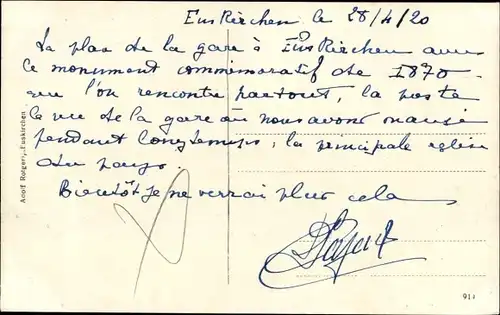 Euskirchen le 28/4/20
La place de la gare à Euskirchen avec
le monument commémoratif de 1870
que l'on rencontre partout, la poste
la vue de la gare où nous avons
pendant longtemps, la principale église
du pays.
Bientôt je ne verrai plus cela
Adolf Rotgeri, Euskirchen
911